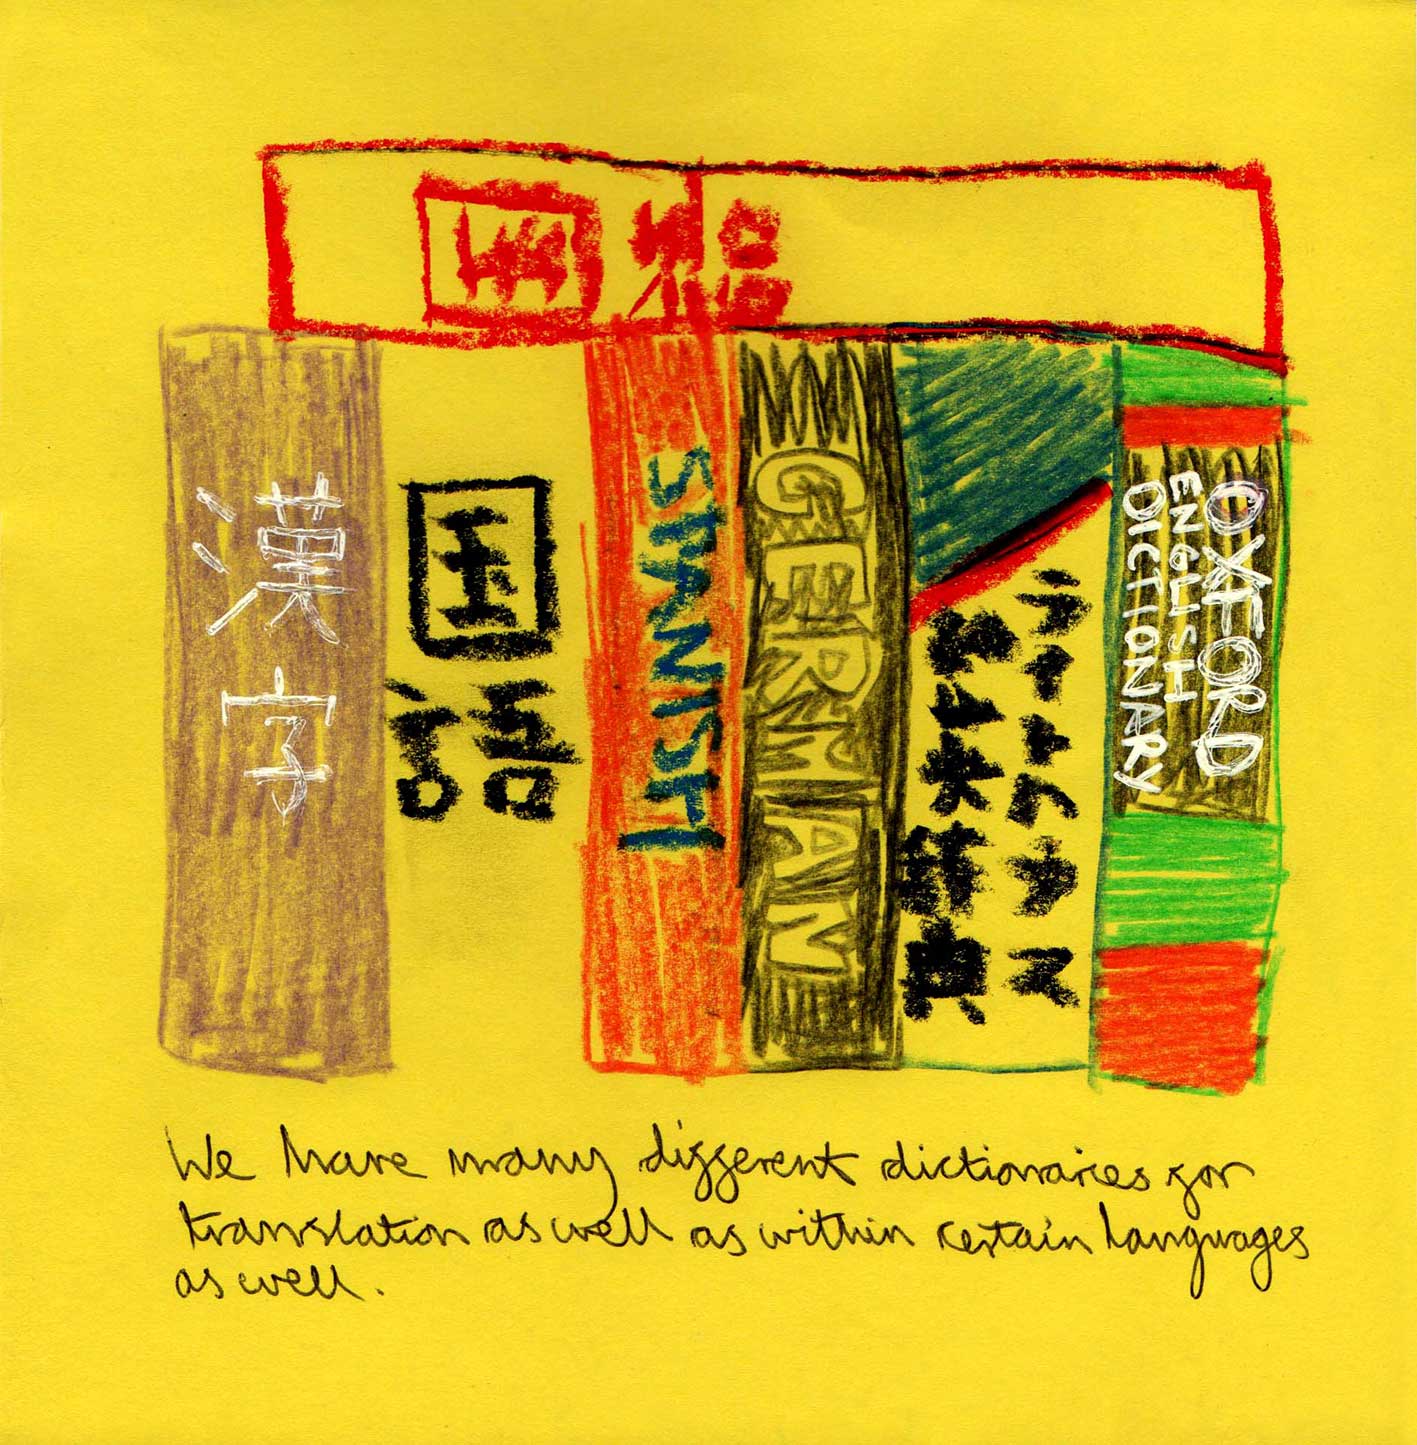 漢字
国語
SPANISH
GERMAN
OXFORD
ENGLISH
DICTIONARY
We have many different dictionaries for
translation as well as within certain languages
as well.